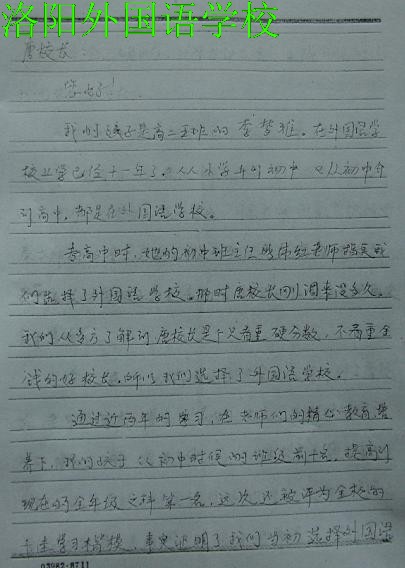 洛阳外国语学校
唐校长：
您好！
我的孩子是高二五班的李梦雅。在外国语学
校上学已经十一年了。从小学升到初中 又从初中升
到高中，都是在外国语学校。
考高中时，她的初中班主任 老师指导我
们选择了外国语学校。那时唐校长刚调来没多久。
我们从多方了解到唐校长是个只看重硬分数，不看重金
钱的好校长。所以我们选择了外国语学校。
通过近两年的学习，在老师们的精心教育培
养下，我的孩子从初中时候的班级前十名，提高到
现在的全年级文科第一名，这次还被评为全校的
十佳学习楷模，事实证明了我们当初选择外国语
03982-8711